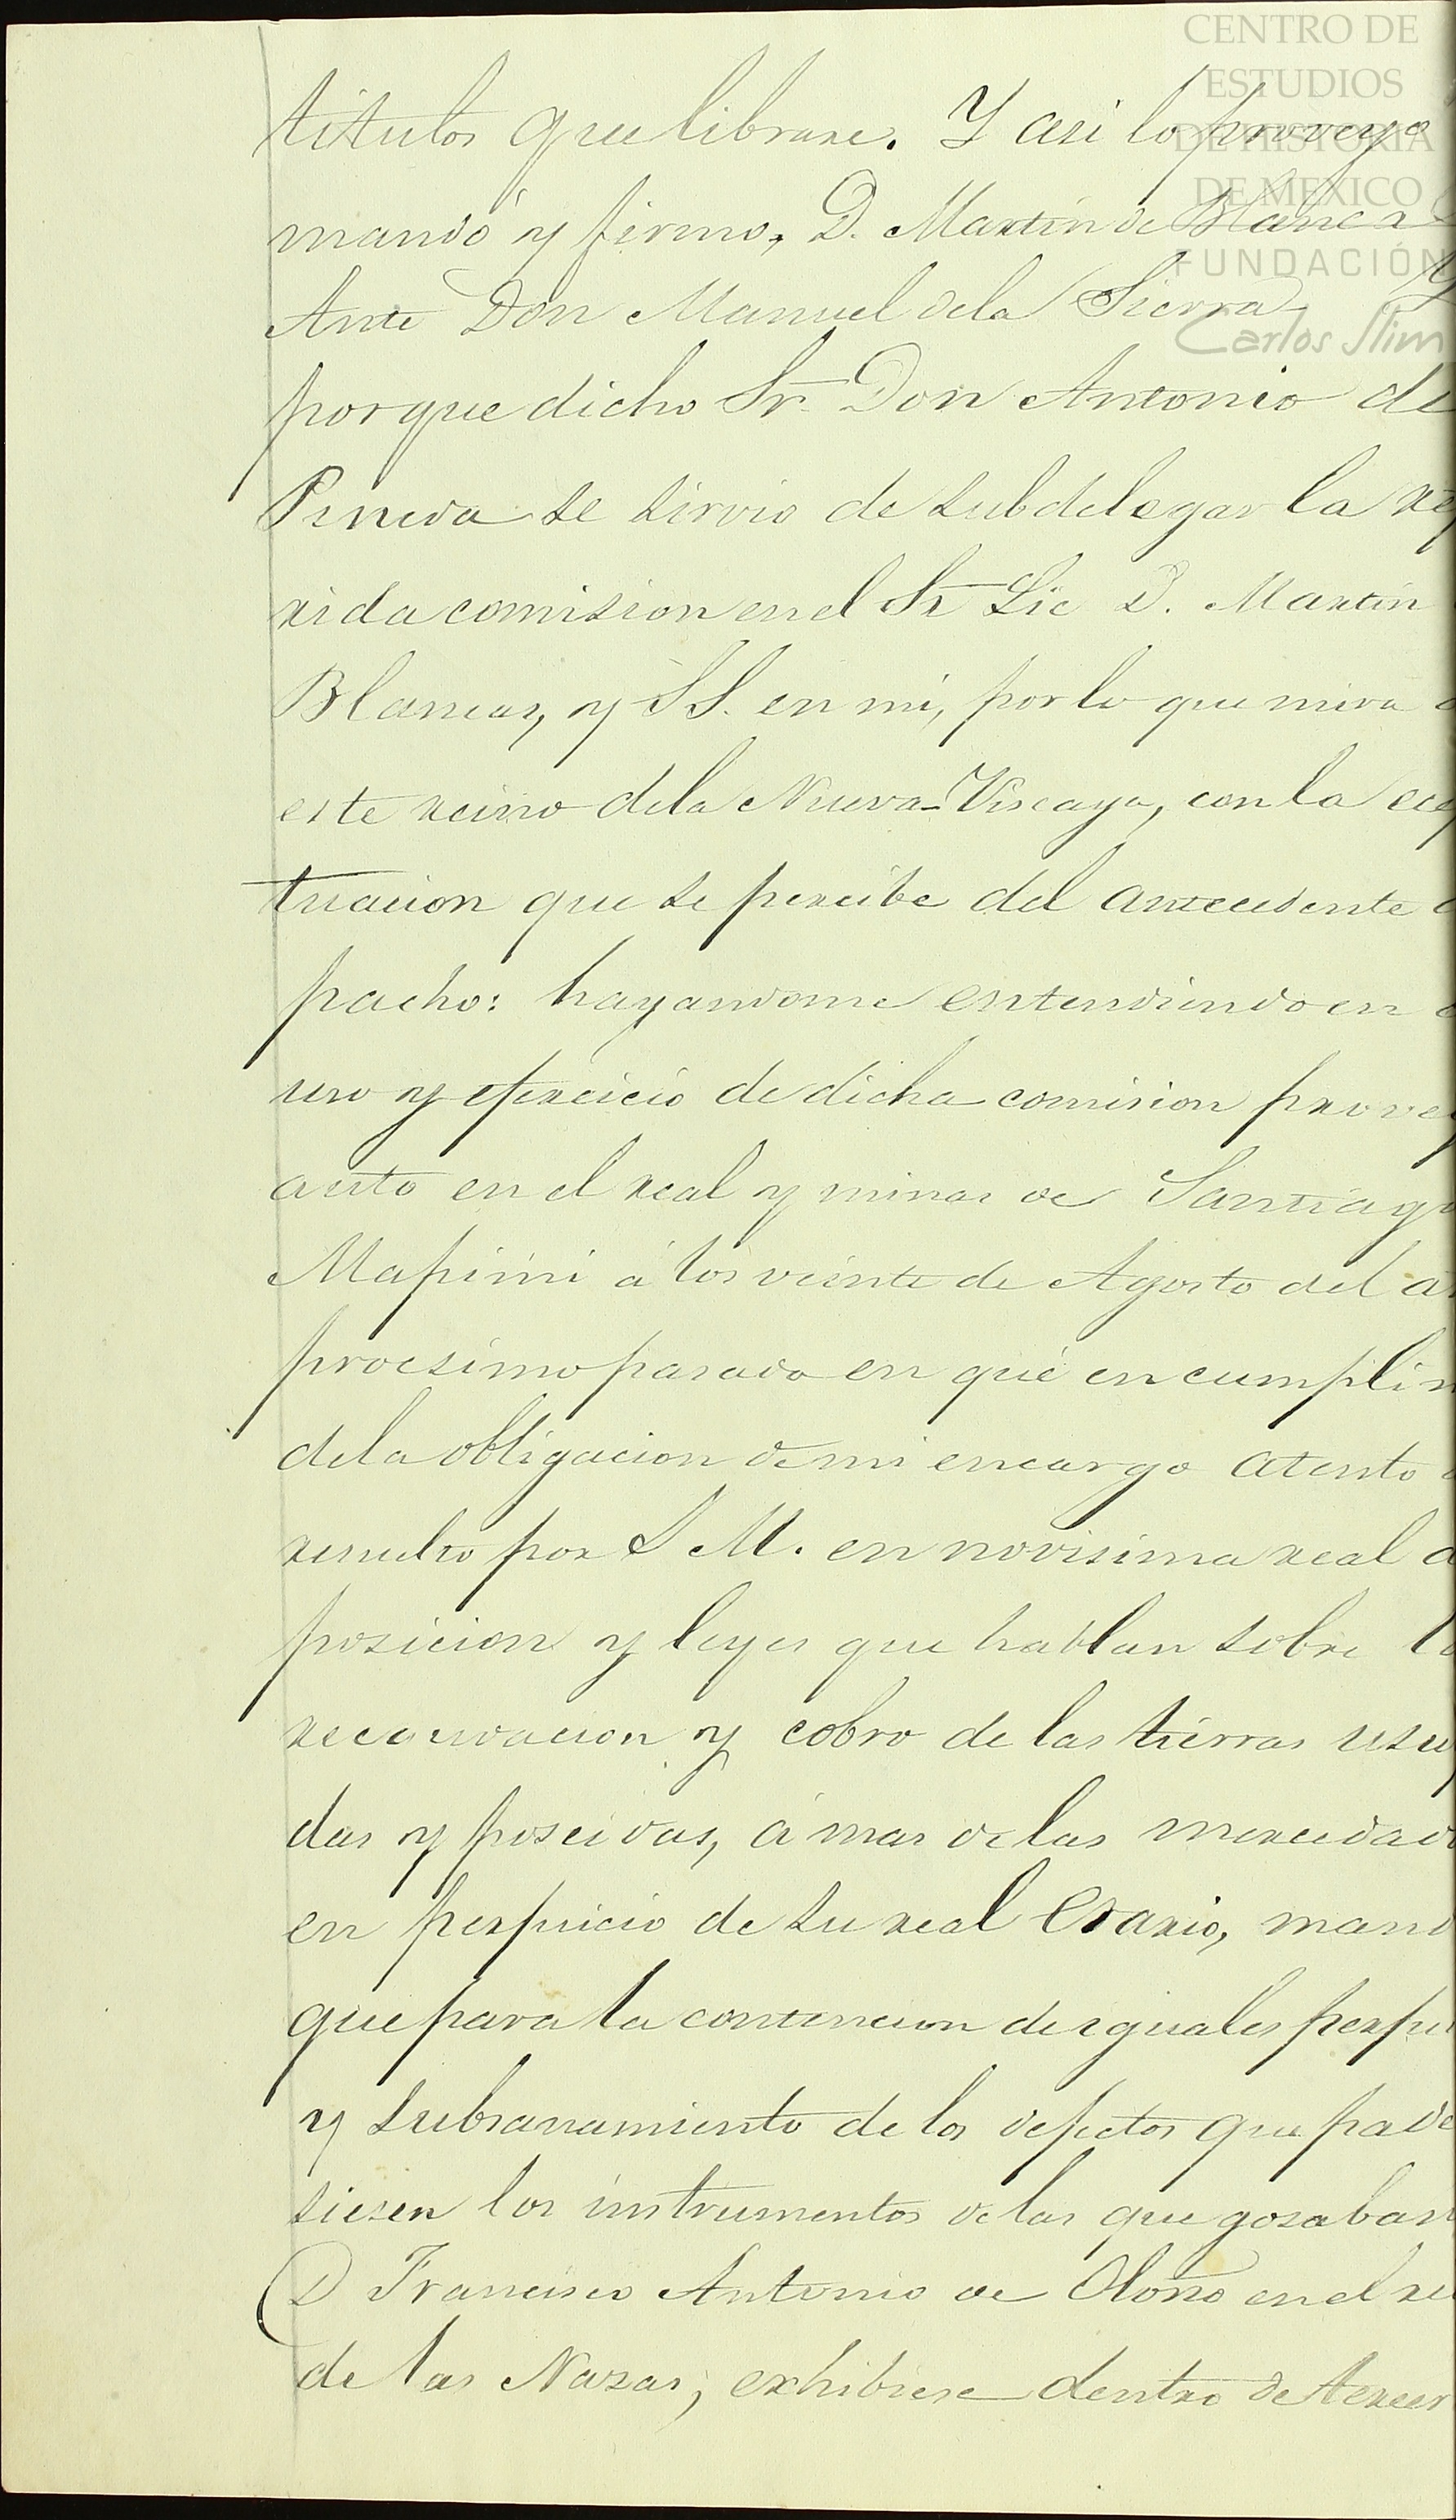 CENTRO DE
ESTUDIOS
DE HISTORIA
DE MEXICO
FUNDACIÓN
Carlos Slim
titulos que librare. Y asi lo proveyo
mandó y firmo, D. Martin de Blanca
Ante Don Manuel dela Sierra y
porque dicho Sr. Don Antonio de
Pineda se sirvio de subdelegar la re
rida comision en el Sr Lic D. Martin
Blancas, y SS. en mi, por lo que mira a
este reino dela Nueva-Viscaya, con la ecep
tuacion que se percibe del antecedente
pacho: hayandome entendiendo en
uso y ejercicio de dicha comision provey
auto en el real y minas de Santiago
Mapimi á los veinte de Agosto del a
procsimo pasado en que en cumplim
dela obligacion de mi encargo atento
resuelto por S M. en novisima real d
posicion y leyes que hablan sobre l
recaudacion y cobro de las tierras usu
das y poseidas, á mas de las mercedad
en perjuicio de su real Erario, mand
que para la contencion de iguales perju
y subsanamiento de los defectos que pade
siesen los instrumentos de las que gosaban
D Francisco Antonio de Oloño en el re
de las Nazas, exhibiese dentro de tercer